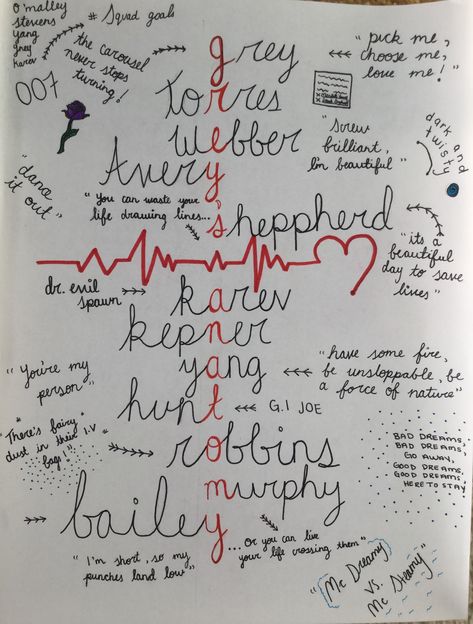 O'malley
stevens
yang
grey
karev
# Squad goals
007
the carousel
never stops
turning!
grey
"pick me,
choose me,
love me!"
torres
webber
"screw
brilliant,
I'm beautiful"
dark and
twisty
Avery
"dana
it out"
"You can waste your
life drawing lines...
sheppherd
"its a
beautiful
day to save
lives"
dr. evil
spawn
karev
kepner
yang
"You're my
person"
"have some fire,
be unstoppable, be
a force of nature"
hunt
G.I JOE
"There's fairy
dust in their I.V
bags!"
robbins
BAD DREAMS,
BAD DREAMS,
GO AWAY,
GOOD DREAMS,
GOOD DREAMS,
HERE TO STAY
murphy
bailey
"I'm short, so my
punches land low"
...Or you can live
your life crossing them"
"Mc Dreamy
vs.
Mc Steamy"